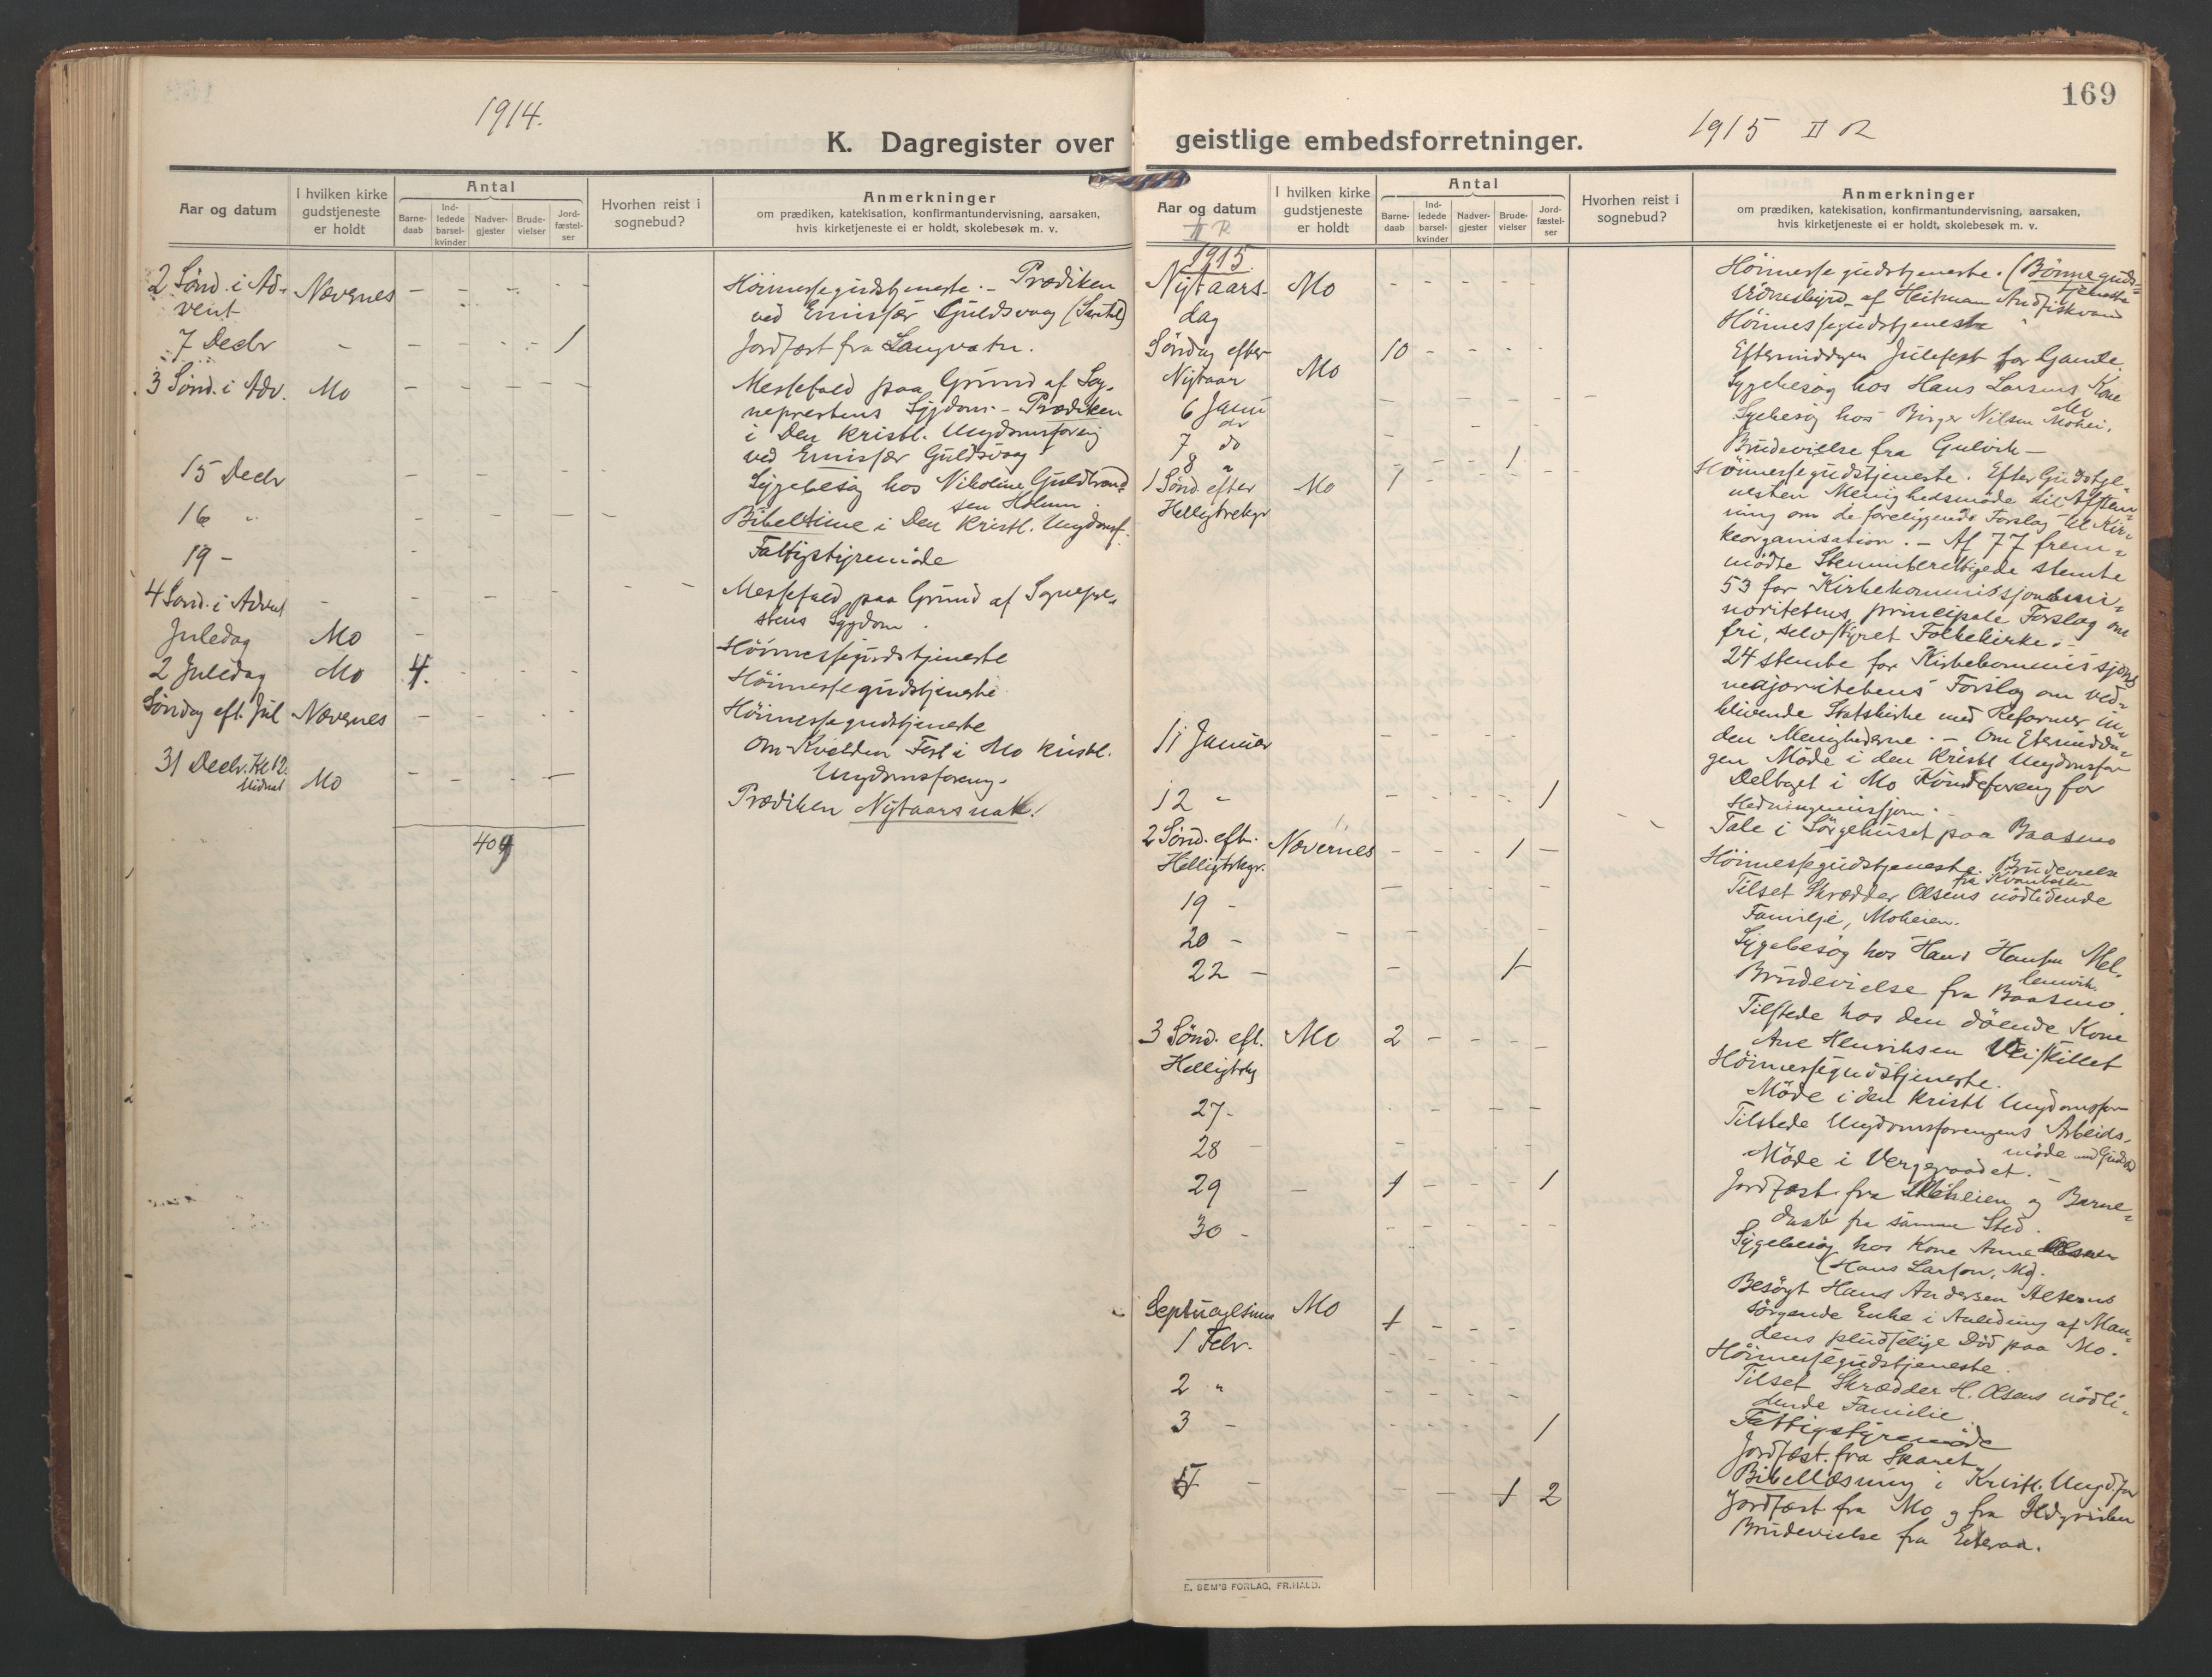 1914.
K. Dagregister over
Aar og datum
I hvilken kirke
gudstjeneste
er holdt
Antal
Barne-
daab
Ind-
ledede
barsel-
kvinder
Nadver-
gjester
Brude-
vielser
Jord-
fæstel-
ser
Hvorhen reist i
sognebud?
Anmerkninger
om prædiken, katekisation, konfirmantundervisning, aarsaken,
hvis kirketjeneste ei er holdt, skolebesøk m. v.
2 Sönd. i Ad-
vent
Nævernes
Höimessegudstjeneste. - Prædiken
ved Emissær Guldsvaag
7 Decbr - 1
Jordfæst fra Langvatn.
3 Sönd. i Adv. Mo
Messefald paa Grund af Sog-
neprestens Sygdom. - Prædiken
i Den kristl. Ungdomsforenig
ved Emissær Guldsvaag
15 Decbr
Sygebesög hos Nikoline Guldbrand-
sen Holmen.
16 "
Bibeltime i Den Kristl. Ungdomsf.
19 -
Fattigstyremöde
4 Sönd. i Advent
Messefald paa Grund af Sognepre-
stens Sygdom.
Juledag Mo
Höimessegudstjeneste
2 Juledag Mo 4.
Höimessegudstjeneste
Söndag eft. Jul Nævernes
Höimessegudstjeneste
Om Kvelden Fest i Mo kristl.
Ungdomsforeng.
31 Decbr. Kl 12.
Midnat Mo
Prædiken Nytaarsnat!
409
169
geistlige embedsforretninger.
1915 II R
Aar og datum
II R
I hvilken kirke
gudstjeneste
er holdt
Antal
Barne-
daab
Ind-
ledede
barsel-
kvinder
Nadver-
gjester
Brude-
vielser
Jord-
fæstel-
ser
Hvorhen reist i
sognebud?
Anmerkninger
om prædiken, katekisation, konfirmantundervisning, aarsaken,
hvis kirketjeneste ei er holdt, skolebesøk m. v.
1915.
Nytaars-
dag
Mo
Höimessegudstjeneste. (Bönneguds-
tjeneste
Vidnesbyrd af Heitman Andfiskvand
Söndag efter
Nytaar
Mo 10
Höimessegudstjeneste
Eftermiddagen Julefest for Gamle.
6 Janu
ar
Sygebesög hos Hans Larsens Kone
7 do
Sygebesög hos Birger Nilsen Mohei.
8 " 1
Brudevielse fra Gulvik -
1 Sönd. efter
Helligtrekgr
Mo 1
Höimessegudstjeneste. Efter Gudstje-
nesten Menighedsmöde til Afstem-
ning om de foreliggende Forslag til Kir-
keorganisation. - Af 77 frem-
mödte Stemmeberettigede stemte
53 for Kirkekommissjonsmi-
noritetens principale Forslag om
fri, selvstyret Folkekirke. -
24 stemte for Kirkekommissjons
majoritetens Forslag om ved-
blivende Statskirke med Reformer in-
den Menighederne. - Om Eftermidda-
gen Möde i den Kristl Ungdomsfor
11 Januar
Deltaget i Mo Kvindeforeng for
Hedningemissjon.
12 " 1
Tale i Sörgehuset paa Baasmo
2 Sönd. eft.
Helligtrkgr.
Nævernes 1
Höimessegudstjeneste. Brudevielse
19 -
Tilset Skrædder Olsens nödlidende
Familje, Moheien.
20 -
Sygebesög hos Hans Hansen Mel-
lemvik.
22 - 1
Brudevielse fra Baasmo.
Tilstede hos den döende Kone
Ane Henriksen Veiskillet
3 Sönd. eft.
Helligtrkg
Mo 2
Höimessegudstjeneste.
Möde i den kristl Ungdomsfor
27 -
Tilstede Ungdomsforengens Arbeids-
möde
28 -
Möde i Vergeraadet. -
29 - 1 1
Jordfæst. fra Moheien og Barne-
daab fra samme Sted.
30 -
Sygebesög hos Kone Anna
(Hans Larsen, Mo).
Besögt Hans Andersen Alterns
sörgende Enke i Anledning af Man-
dens pludselige Död paa Mo.
Septuagesima Mo 1
Höimessegudstjeneste.
1 Febr.
Tilset Skrædder H. Olsens nödli-
dende Familie.
2 "
Fattigstyremöde
3 - 1
Jordfæst. fra Skaret
Bibellæsning i Kristl. Ungdfor
5 - 1 2
Jordfæst fra Mo og fra
Brudevielse fra Eiteraa.
E. SEM'S FORLAG, FR.HALD.